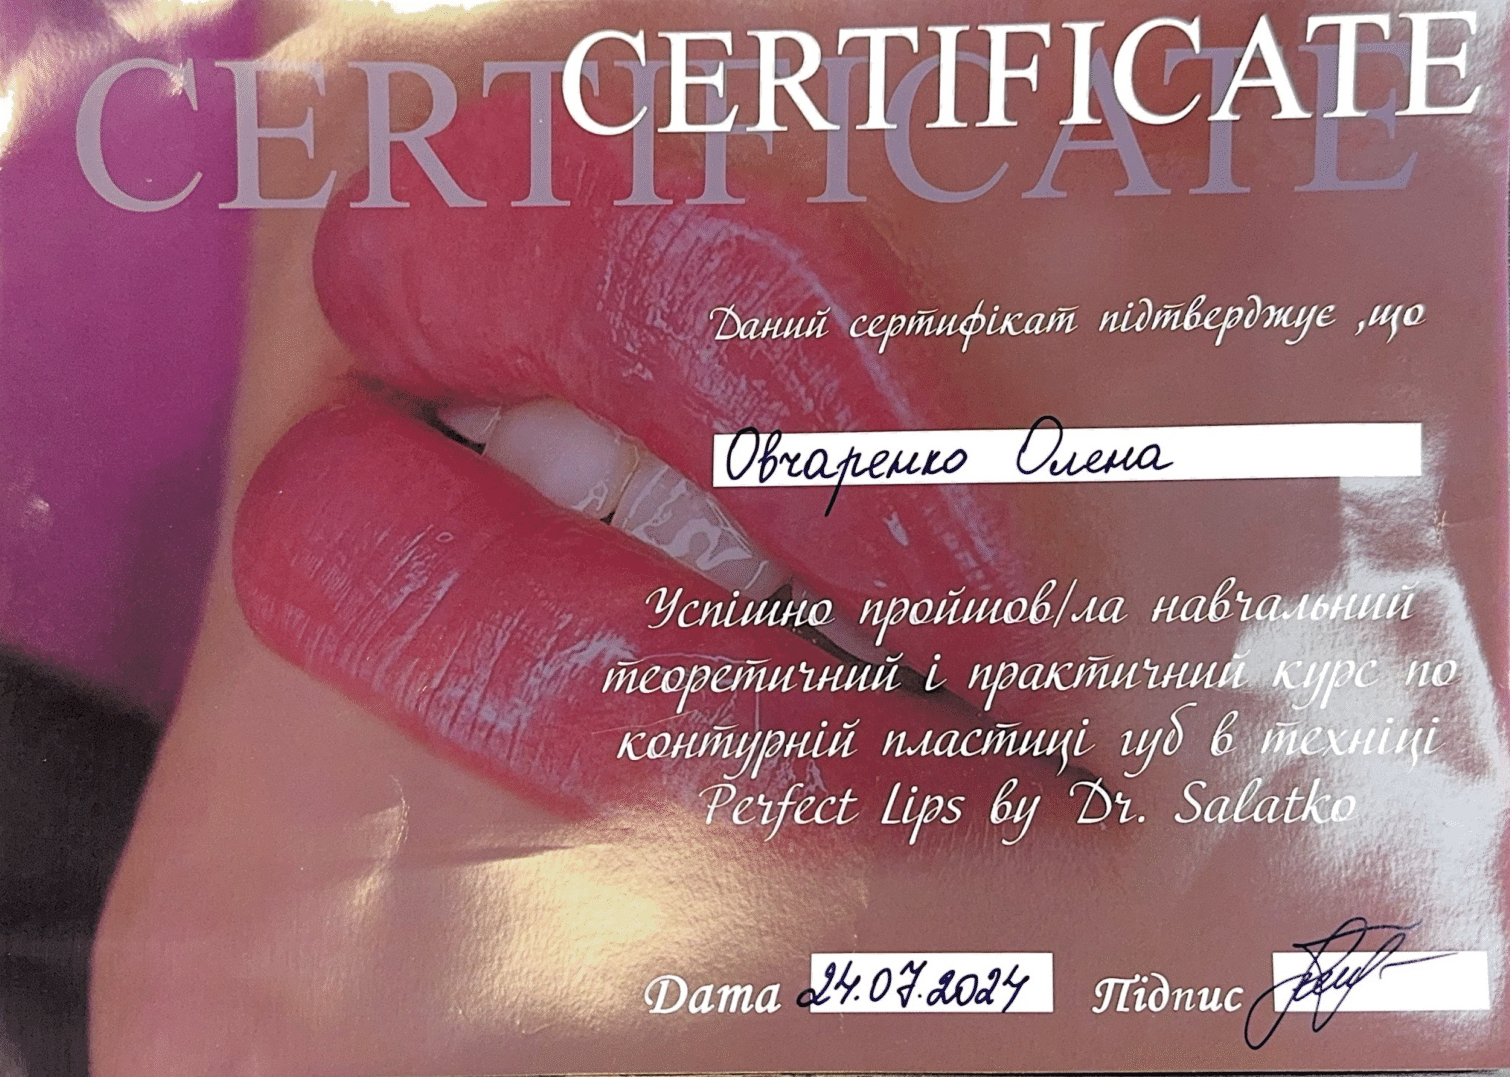 CERTIFICATE
CERTIFICATE
Даний сертифікат підтверджує ,що
Овчаренко Олена
Успішно пройшов/ла навчальний
теоретичний і практичний курс по
контурній пластиці губ в техніці
Perfect Lips by Dr. Salatko
Дата 24.07.2024 Підпис